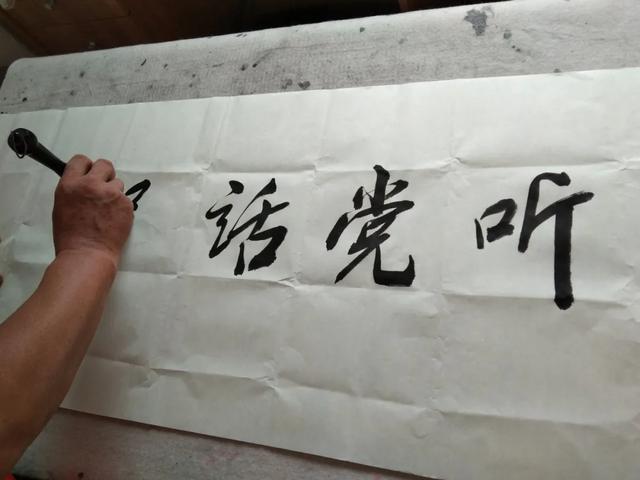 听党话